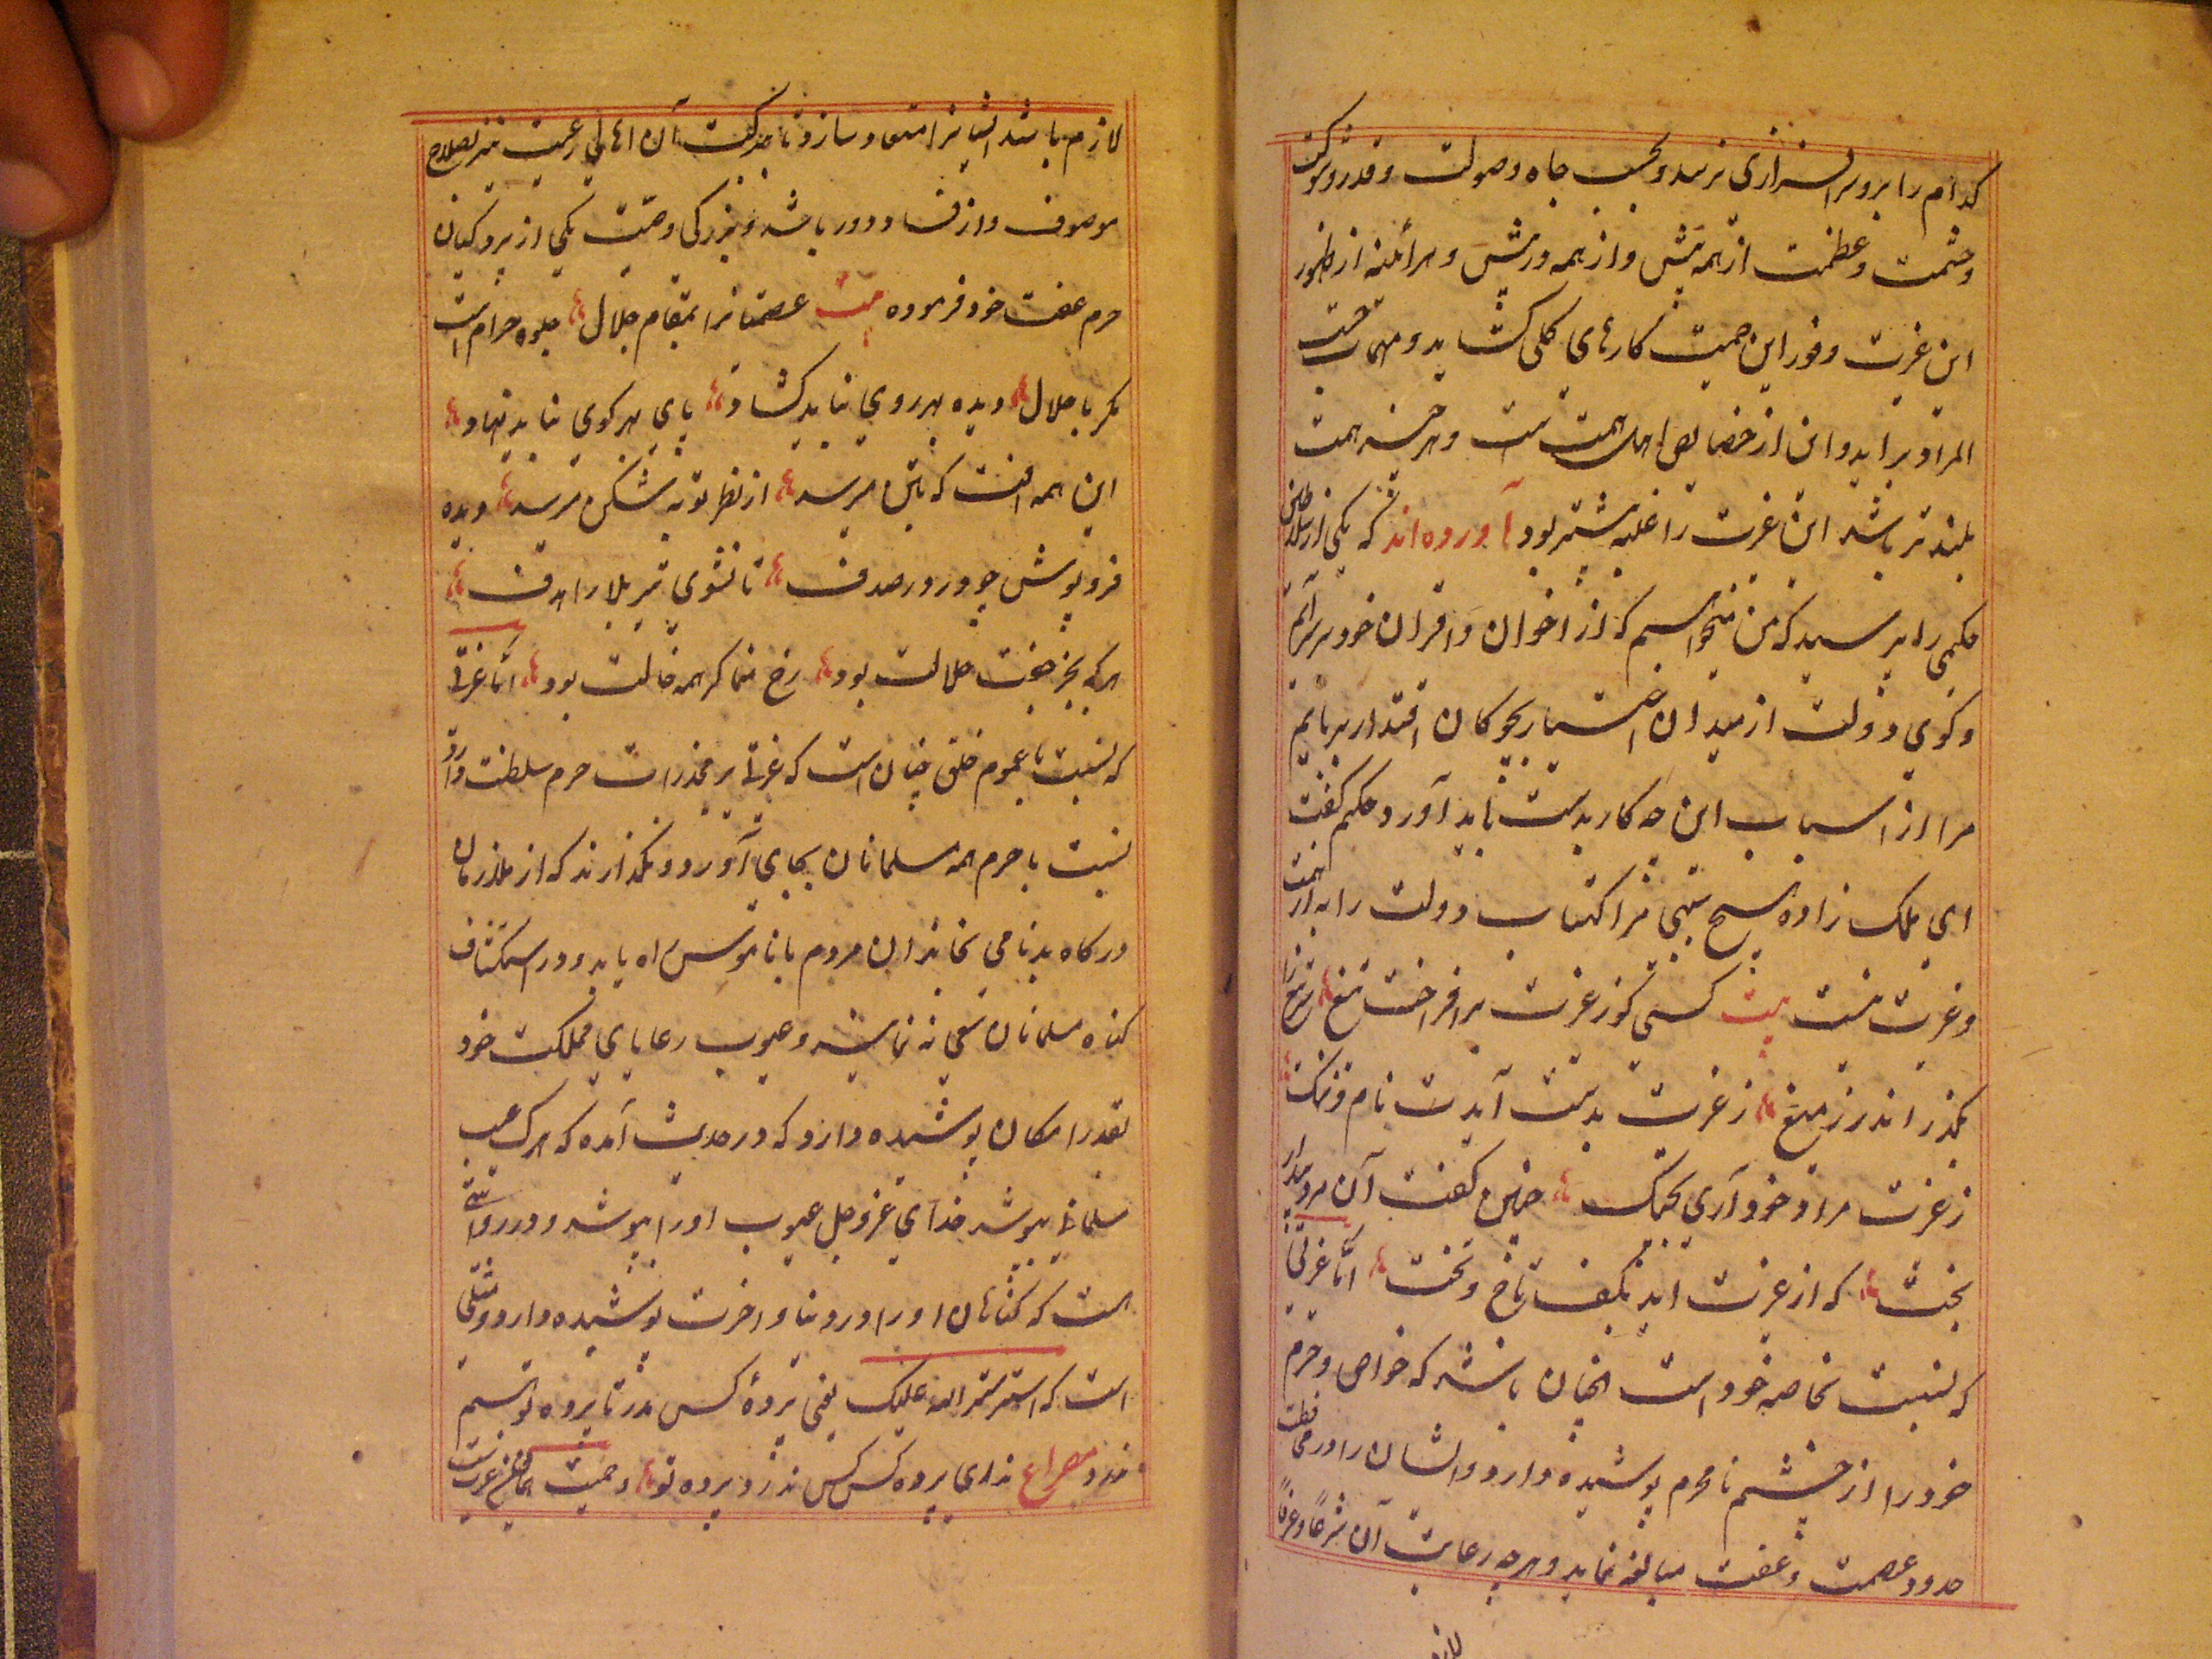 کدام را برو سرافرازی نرسد و بحسب جاه و صولت و قدر و شوکت
و حشمت و عظمت از همه بیش و از همه در پیش و هرآئنه از ظهور
این غیرت و فور این حمیت کارهای کلی کشاید و مهمات حسب
المراد برآید و این از خصایص اهل همت است و هر چند همت
بلندتر باشد این غیرت را غلبه بیشتر بود آورده‌اند که یکی از سلاطین
حکیمی را پرسید که من میخواهم که از اخوان و اقران خود برسرآیم
و کوی دولت از میدان اختیار بچوکان اقتدار بربایم
مرا از اسباب این چه کار بدست باید آورد حکیم کفت
ای ملک زاده هیچ سببی مر اکتساب دولت را به از همت
و غیرت نیست بیت کسی کو ز غیرت برافراخت تیغ
بکذراند ز میغ ز غیرت بدست آیدت نام و ننک
ز غیرت مراد خود آری بچنک چنین کفت آن مرد بیدار
بخت که از غیرت آید بکف تاج و تخت اما غیرتی
که نسبت بخاصه خود است انچنان باشد که خواص و حرم
خود را از چشم نامحرم پوشیده دارد و ایشان را در محافظت
حدود عصمت و عفت مبالغه نماید و هر چه رعایت آن شرعاً و عرفاً
لازم
لازم باشد ایشانرا معتاد سازد تا ببرکت آن اهالی رعیت نیز بصلاح
موصوف و از فساد دور باشند و بزرکی وصیت یکی از پردکیان
حرم عفت خود فرموده بیت عصمتیانرا بمقام جلال جلوه حرام است
مکر با حلال دیده بهر روی نباید کشاد پای بهر کوی نباید نهاد
این همه آفت که بتن میرسد از نظر توبه شکن میرسد دیده
فروپوش چو در در صدف تا نشوی تیر بلا را هدف
هر که بجز جفت حلالت بود رخ منما کر همه خالت بود اما غیرتی
که نسبت بعموم خلق چنان است که غیرتی بر مخدرات حرم سلطنت دارد
نسبت با حرم همه مسلمانان بجای آورد و نکذارند که از ملازمان
درکاه بدنامی بخاندان مردم با ناموس راه یابد و در استکشاف
کناه مسلمانان سعی نه نمایند و عیوب رعایای مملکت خود
بقدر امکان پوشیده دارد که در حدیث آمده که هرک عیب
مسلمانی بپوشد خدای عزوجل عیوب او را بپوشد و در روایتی
هست که کناهان او را در دنیا و اخرت پوشیده دارد و مثلی
است که استر ستر الله علیک یعنی پردهٔ کس مدر تا پرده تو نیز
ندرد مصراع نداری پرده کس کس ندرد پرده تو و حمیت